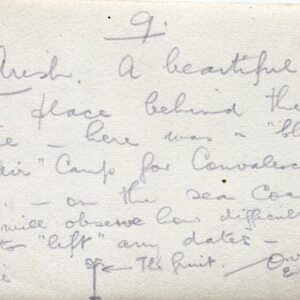 9.
Arish. A beautiful
place behind the
– here was a "bl
" Camp for Convalesc
– on the sea Coa
will observe how difficult
to "lift" any dates –
The fruit.